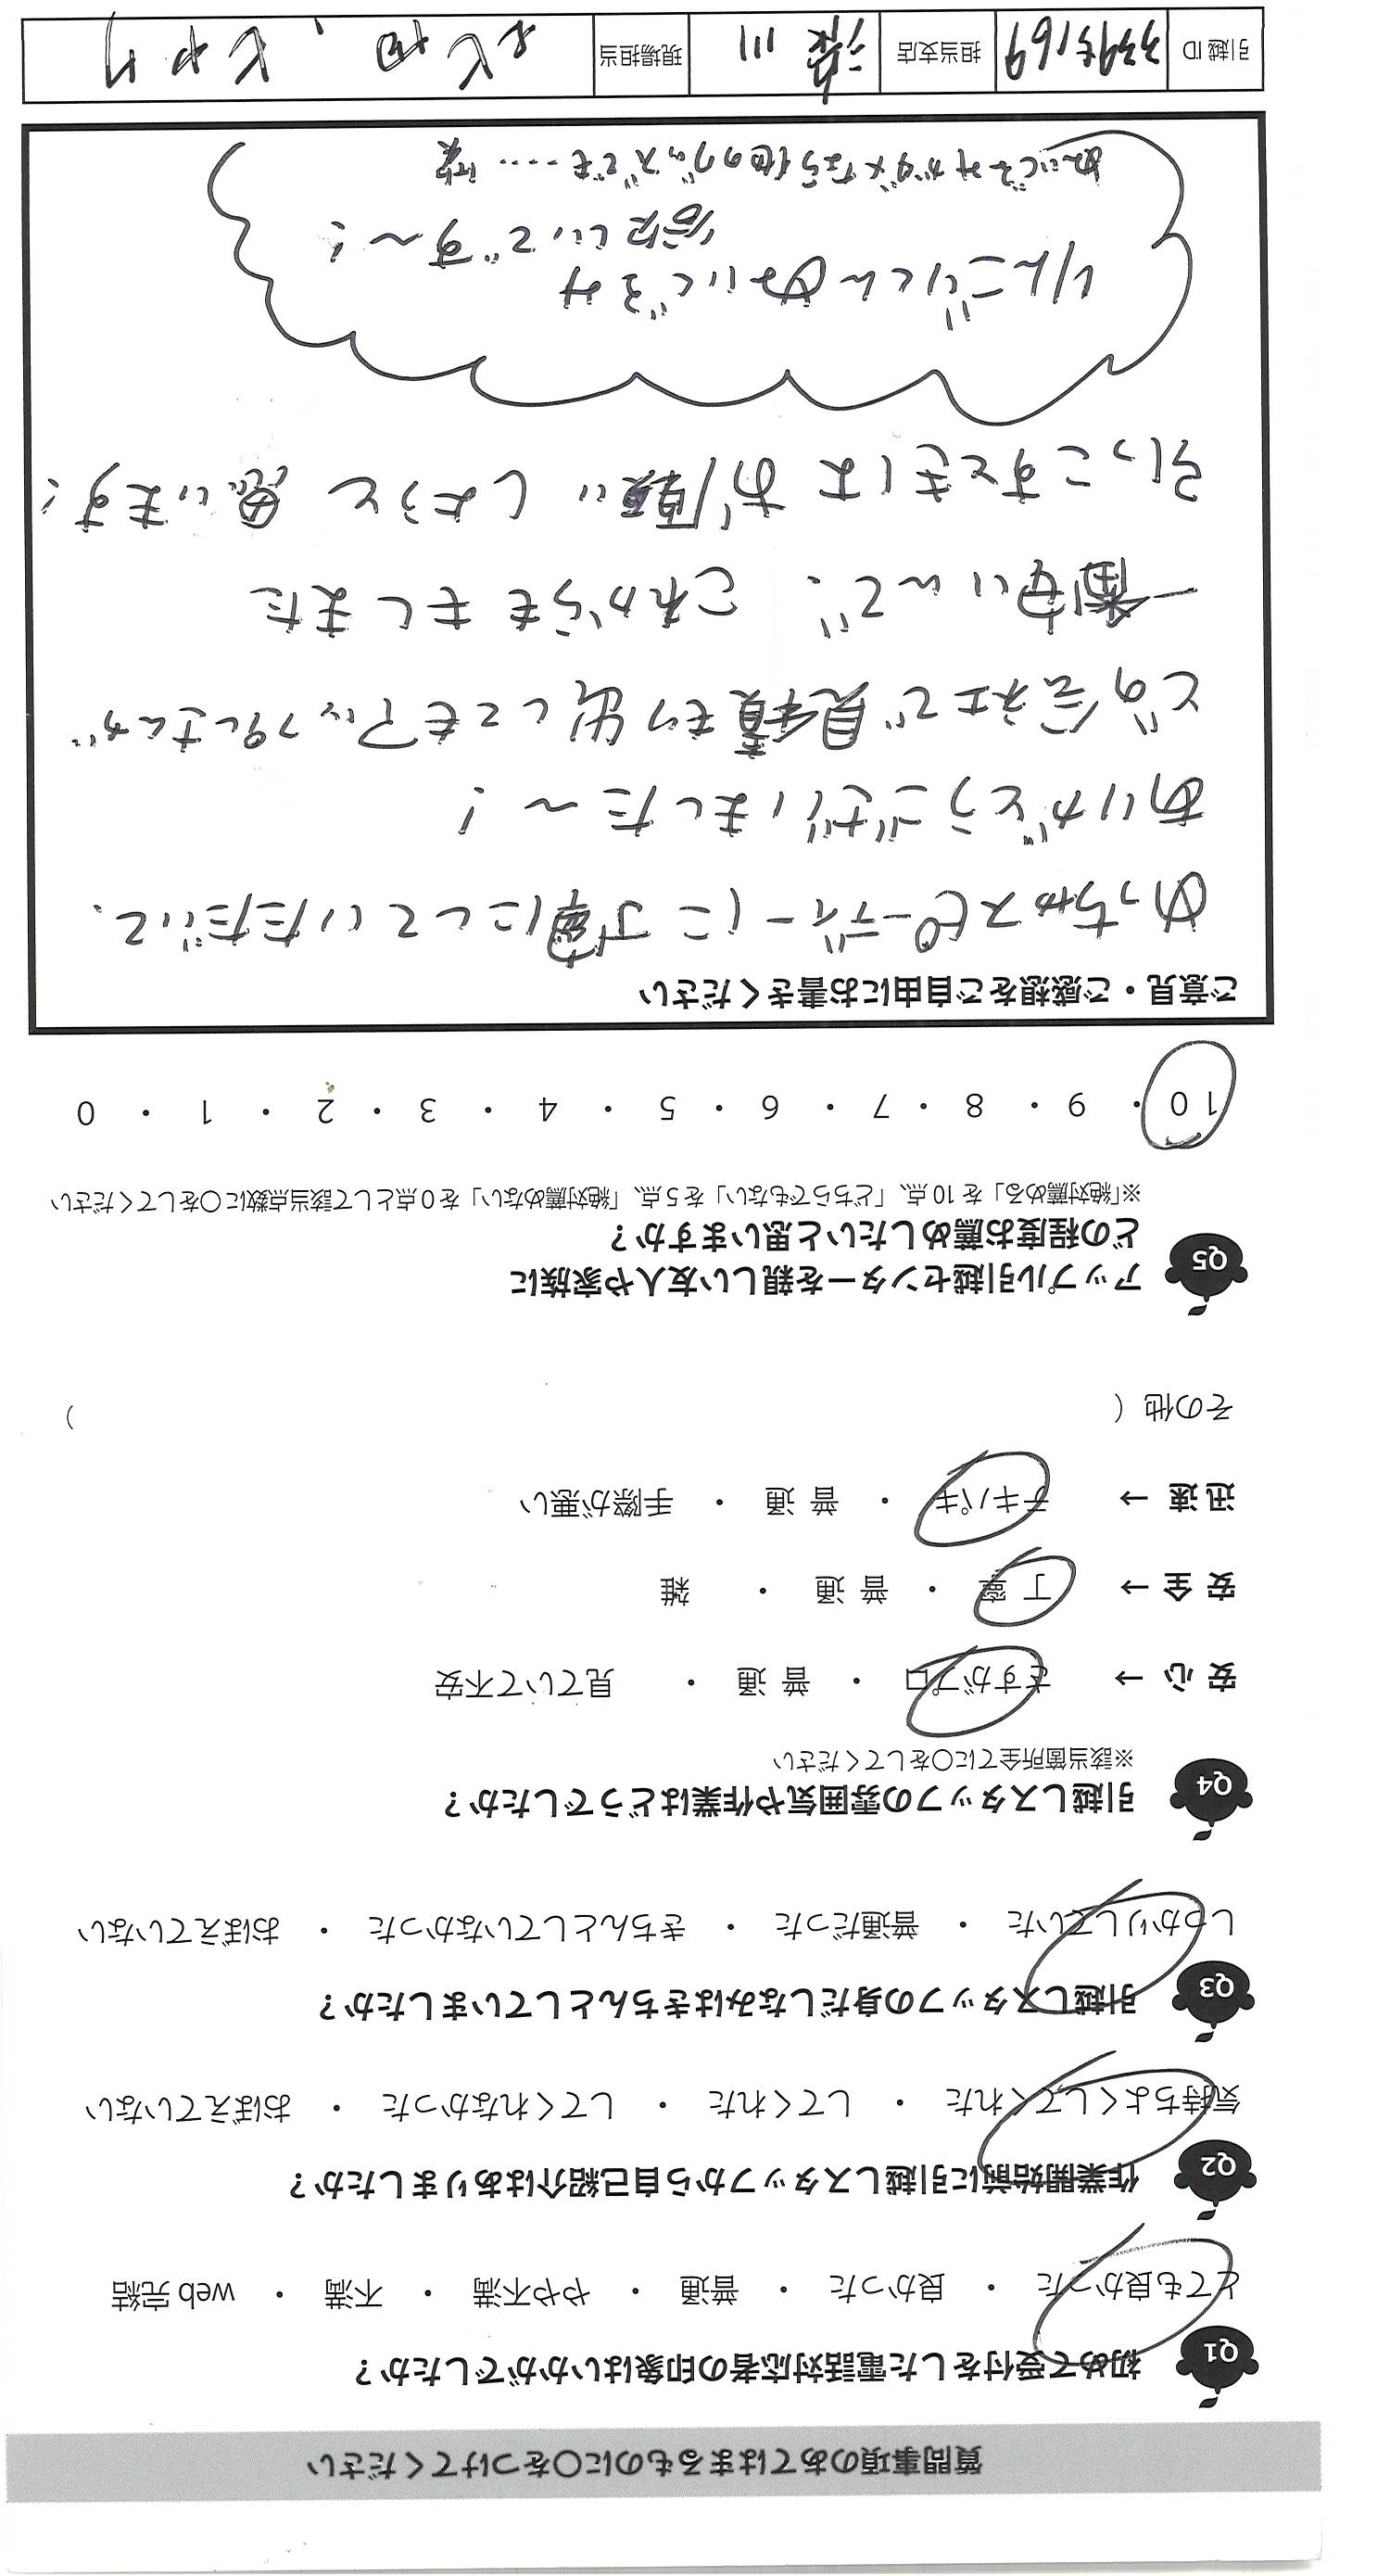 質問事項のあてはまるものに〇をつけてください
Q1 初めて受付をした電話対応者の印象はいかがでしたか？
とても良かった ・ 良かった ・ 普通 ・ やや不満 ・ 不満 ・ web 完結
Q2 作業開始前に引越しスタッフから自己紹介はありましたか？
気持ちよくしてくれた ・ してくれた ・ してくれなかった ・ おぼえていない
Q3 引越しスタッフの身だしなみはきちんとしていましたか？
しっかりしていた ・ 普通だった ・ きちんとしていなかった ・ おぼえていない
Q4 引越しスタッフの雰囲気や作業はどうでしたか？
※該当箇所全てに〇をしてください
安 心 → さすがプロ ・ 普 通 ・ 見ていて不安
安 全 → 丁 寧 ・ 普 通 ・ 雑
迅 速 → テキパキ ・ 普 通 ・ 手際が悪い
その他（ ）
Q5 アップル引越センターを親しい友人や家族に
どの程度お薦めしたいと思いますか？
※「絶対薦める」を 10 点、「どちらでもない」を 5 点、「絶対薦めない」を 0 点として該当点数に〇をしてください
10 ・ 9 ・ 8 ・ 7 ・ 6 ・ 5 ・ 4 ・ 3 ・ 2 ・ 1 ・ 0
ご意見・ご感想をご自由にお書きください
めっちゃスピーディーに丁寧にしていただいて、
ありがとうございました〜！
どの会社で見積もり出してもアップルさんが
一番安いんで、これからもしまた
引っこすときはお願いしようと思います！
りんごりくんぬいぐるみ
欲しいです〜！
ぬいぐるみがダメなら他のグッズでも……笑
引越 ID 3395169 担当支店 川 現場担当